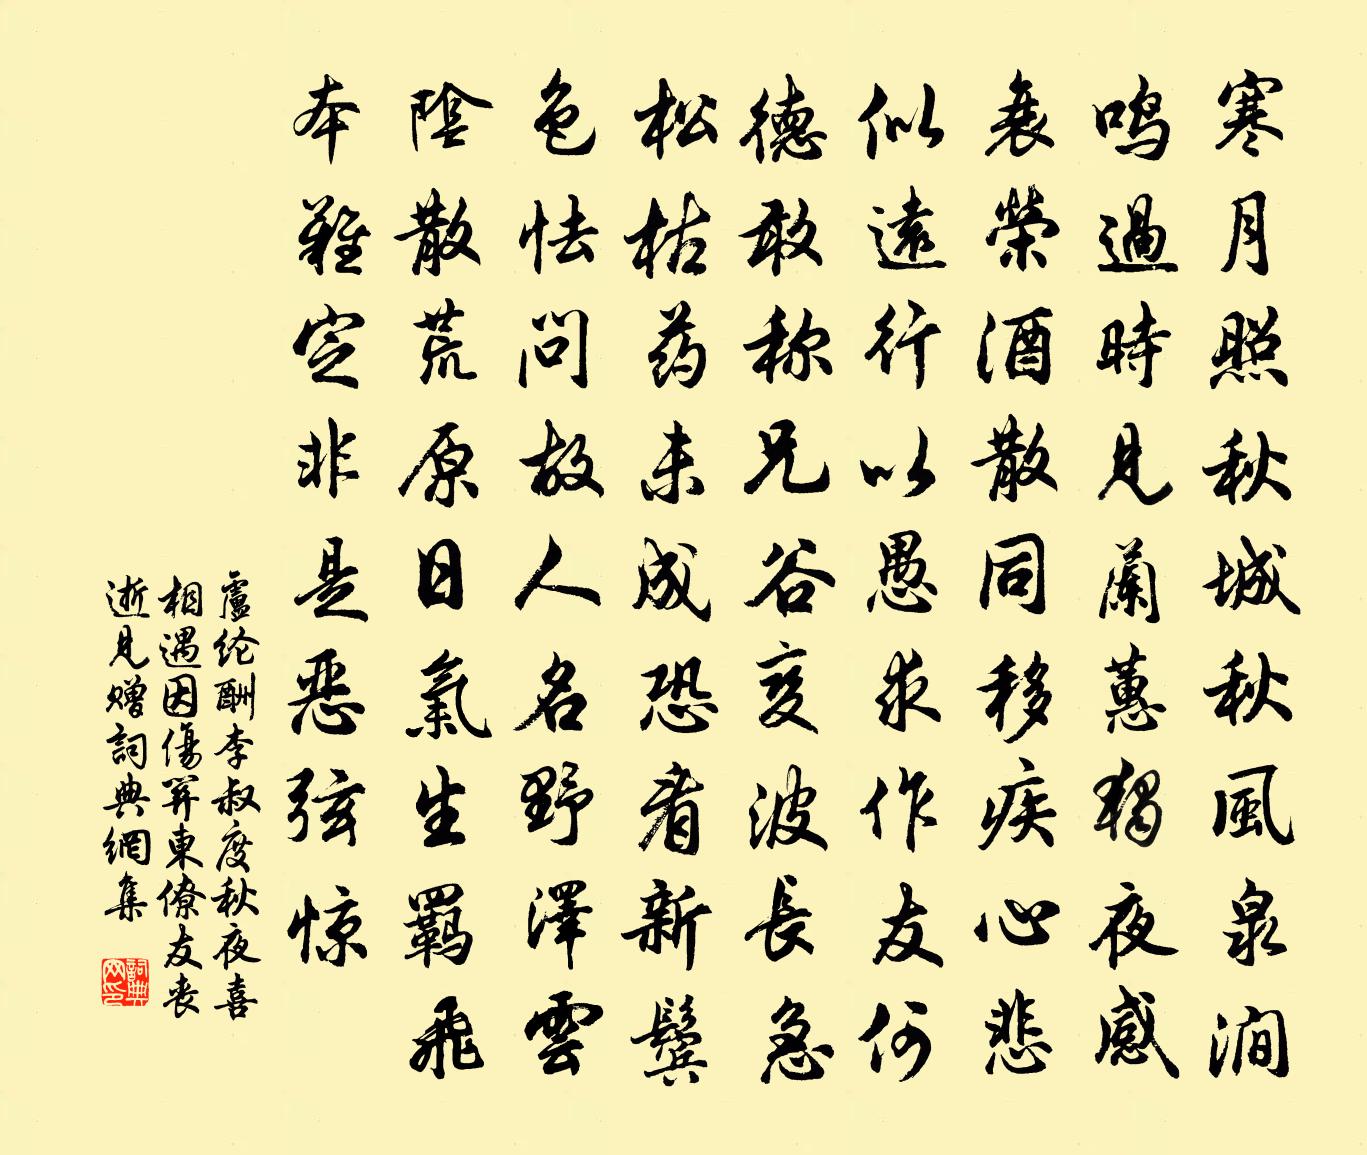 寒月照秋城秋風泉澗
鳴過時見蘭蕙獨夜感
衰榮酒散同移疾心悲
似遠行以愚求作友何
德敢称兄谷变波長急
松枯药未成恐看新鬓
色怯问故人名野澤雲
陰散荒原日氣生羈飛
本難定非是恶弦惊
盧纶酬李叔度秋夜喜
相遇因傷関東僚友丧
逝見赠詞典網集
詞典网印